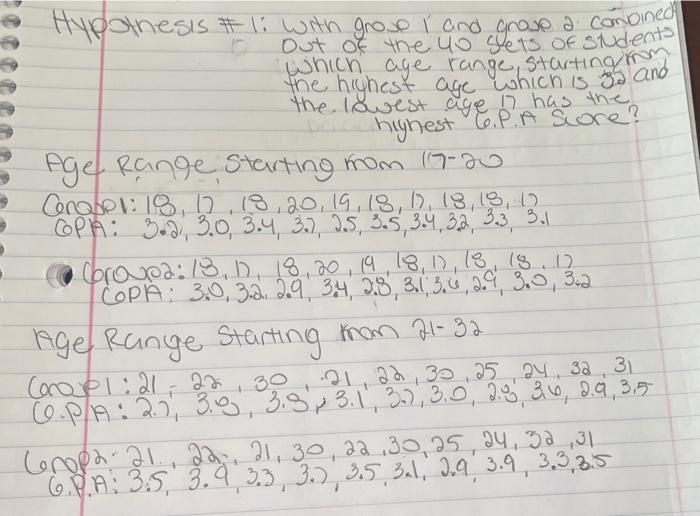 Hypothesis #1: With group 1 and group 2 combined
Out of the 40 sets of students
which age range, starting from
the highest age which is 32 and
the lowest age 17 has the
highest G.P.A Score?
Age Range Starting from 17-20
Group1: 18, 17, 18, 20, 19, 18, 17, 18, 18, 17
GPA: 3.2, 3.0, 3.4, 3.7, 2.5, 3.5, 3.4, 3.2, 3.3, 3.1
Group2: 18, 17, 18, 20, 19, 18, 17, 18, 18, 17
GPA: 3.0, 3.2, 2.9, 3.4, 2.8, 3.1, 3.6, 2.9, 3.0, 3.2
Age Range Starting from 21-32
Group1: 21, 22, 30, 21, 22, 30, 25, 24, 32, 31
G.P.A: 2.7, 3.9, 3.8, 3.1, 3.7, 3.0, 2.8, 3.6, 2.9, 3.5
Group2: 21, 22, 21, 30, 22, 30, 25, 24, 32, 31
G.P.A: 3.5, 3.9, 3.3, 3.7, 3.5, 3.1, 2.9, 3.9, 3.3, 3.5